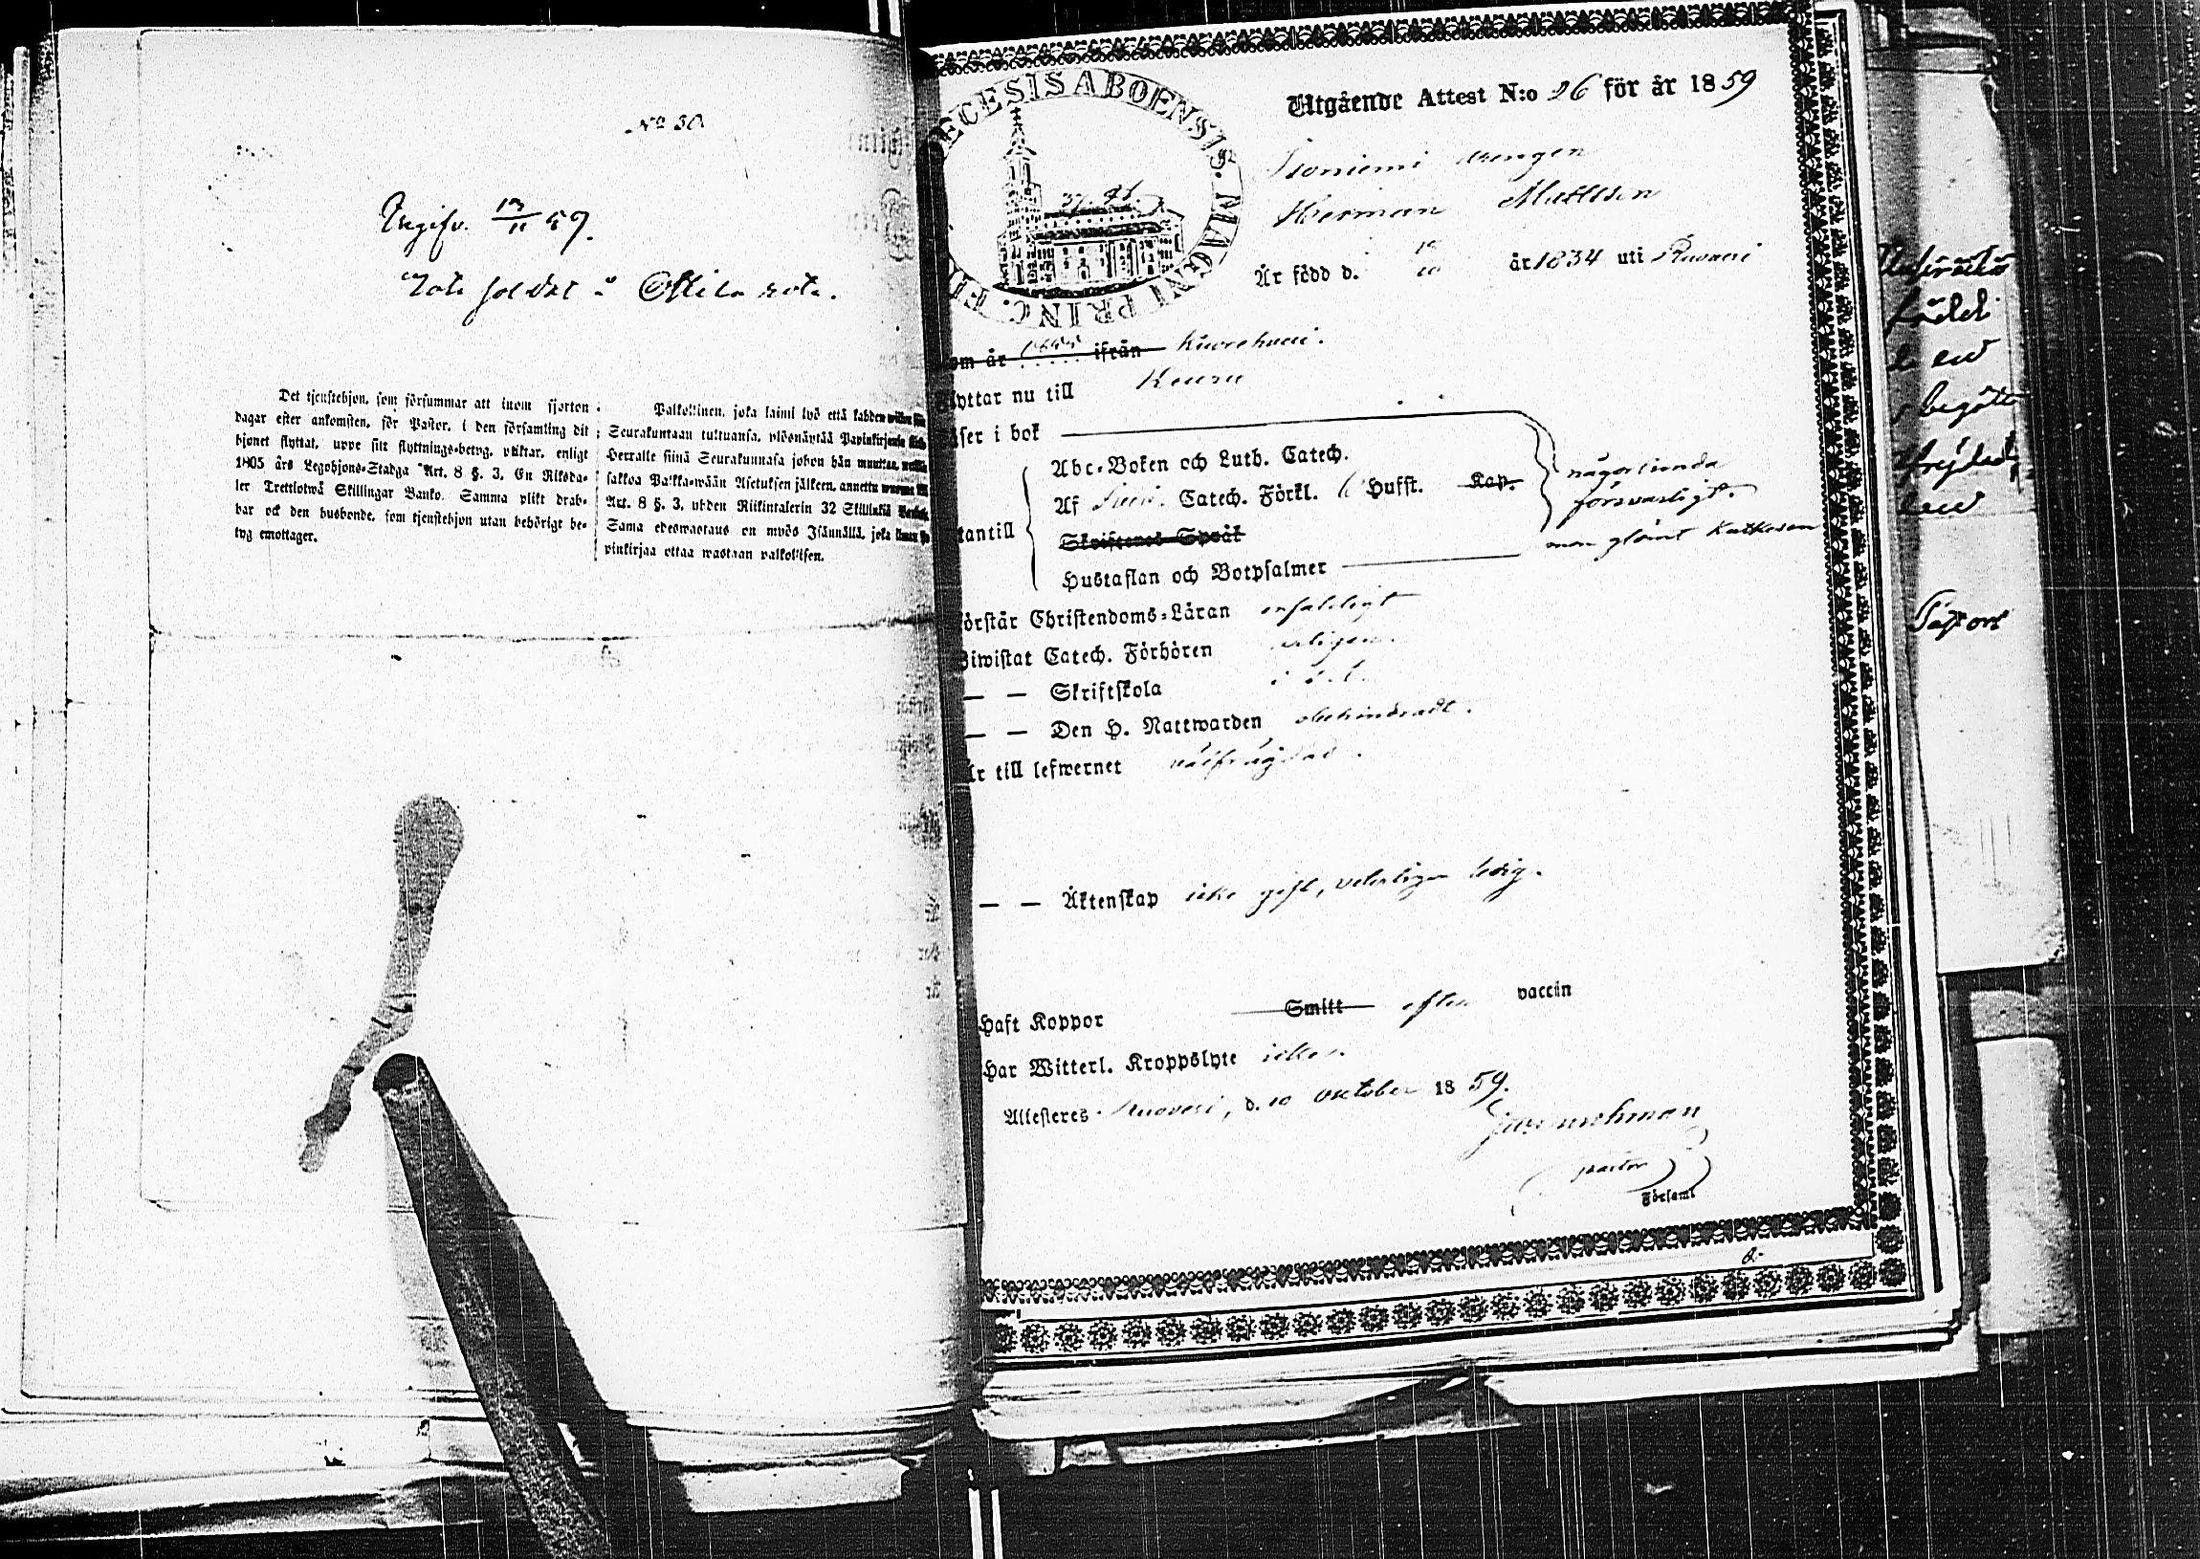 No 30.
Uegifv. 13/11 59.
Rote soldat å Ollila rote.
Det tjenstehjon, som försummar att inom fjorton
dagar efter ankomsten, för Pastor, i den församling dit
hjonet flyttat, uppe sitt flyttnings-betyg, pliktar, enligt
1805 års Legohjons-Stadga Art. 8 §. 3, En Riksda-
ler Trettiotwå Skillingar Banko. Samma plikt drab-
bar ock den husbonde, som tjenstehjon utan behörigt be-
tyg emottager.
Palkollinen, joka laimi lyö että kahden wiikon
Seurakuntaan tultuansa, ylösnäyttää Papinkirjansa
Herralle siinä Seurakunnasa johon hän muuttaa,
sakkoa Palkka-wään Asetuksen jälkeen, annettu wuonna
Art. 8 §. 3, yhden Riikintalerin 32 Skillinkiä
Sama edeswastaus on myös Isännällä, joka ilman
pinkirjaa ottaa wastaan palkollisen.
ECESIS ABOENSIS. MAGNI PRINC. FI
Utgående Attest N:o 26 för år 1859
Isoniemi drengen
Herman Mattsson
Är född d. 10 år 1834 uti Ruovesi
om år ifrån Kuorehvesi.
lyttar nu till Keuru
äser i bok
Abc-Boken och Luth. Catech.
Af Catech. Förkl. Hufst. Kap.
tantill
Skriftenes Språk
Hustaflan och Botpsalmer
någorlunda
försvarligt.
men glömt
örstår Christendoms-Läran enfaldigt
Biwistat Catech. Förhören årligen.
— — Skriftskola
— — Den H. Nattwarden obehindradt.
är till lefwernet välfrägdad.
— — Äktenskap icke gift, veterligen ledig.
Haft Koppor Smitt efter vaccin
Har Witterl. Kroppslyte icke.
Attesteres Ruovesi, d. 10 Oktober 1859.
pastor
Församl
född
Pastor